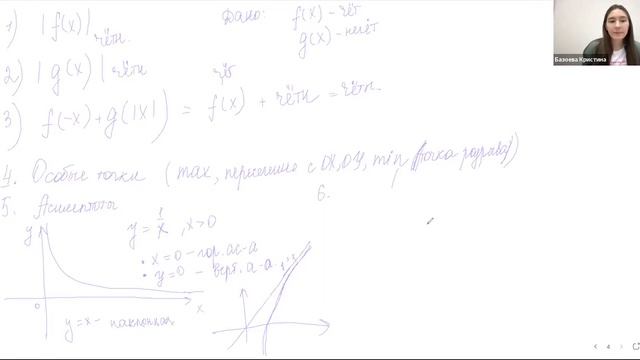 Дано: f(x) - чёт
g(x) - нечёт
1) | f(x) | чётн.
2) | g(x) | чётн
чёт
3) f(-x) + g(|x|) = f(x) + чётн = чётн.
4. Особые точки (max, пересечение с OX, OY, min, точка разрыва)
5. Асимптоты
6.
y = 1/x , x>0
• x = 0 - гор. ас-а
• y = 0 - верт. а-а
y
0
x
y = x - наклонная
Базоева Кристина
4